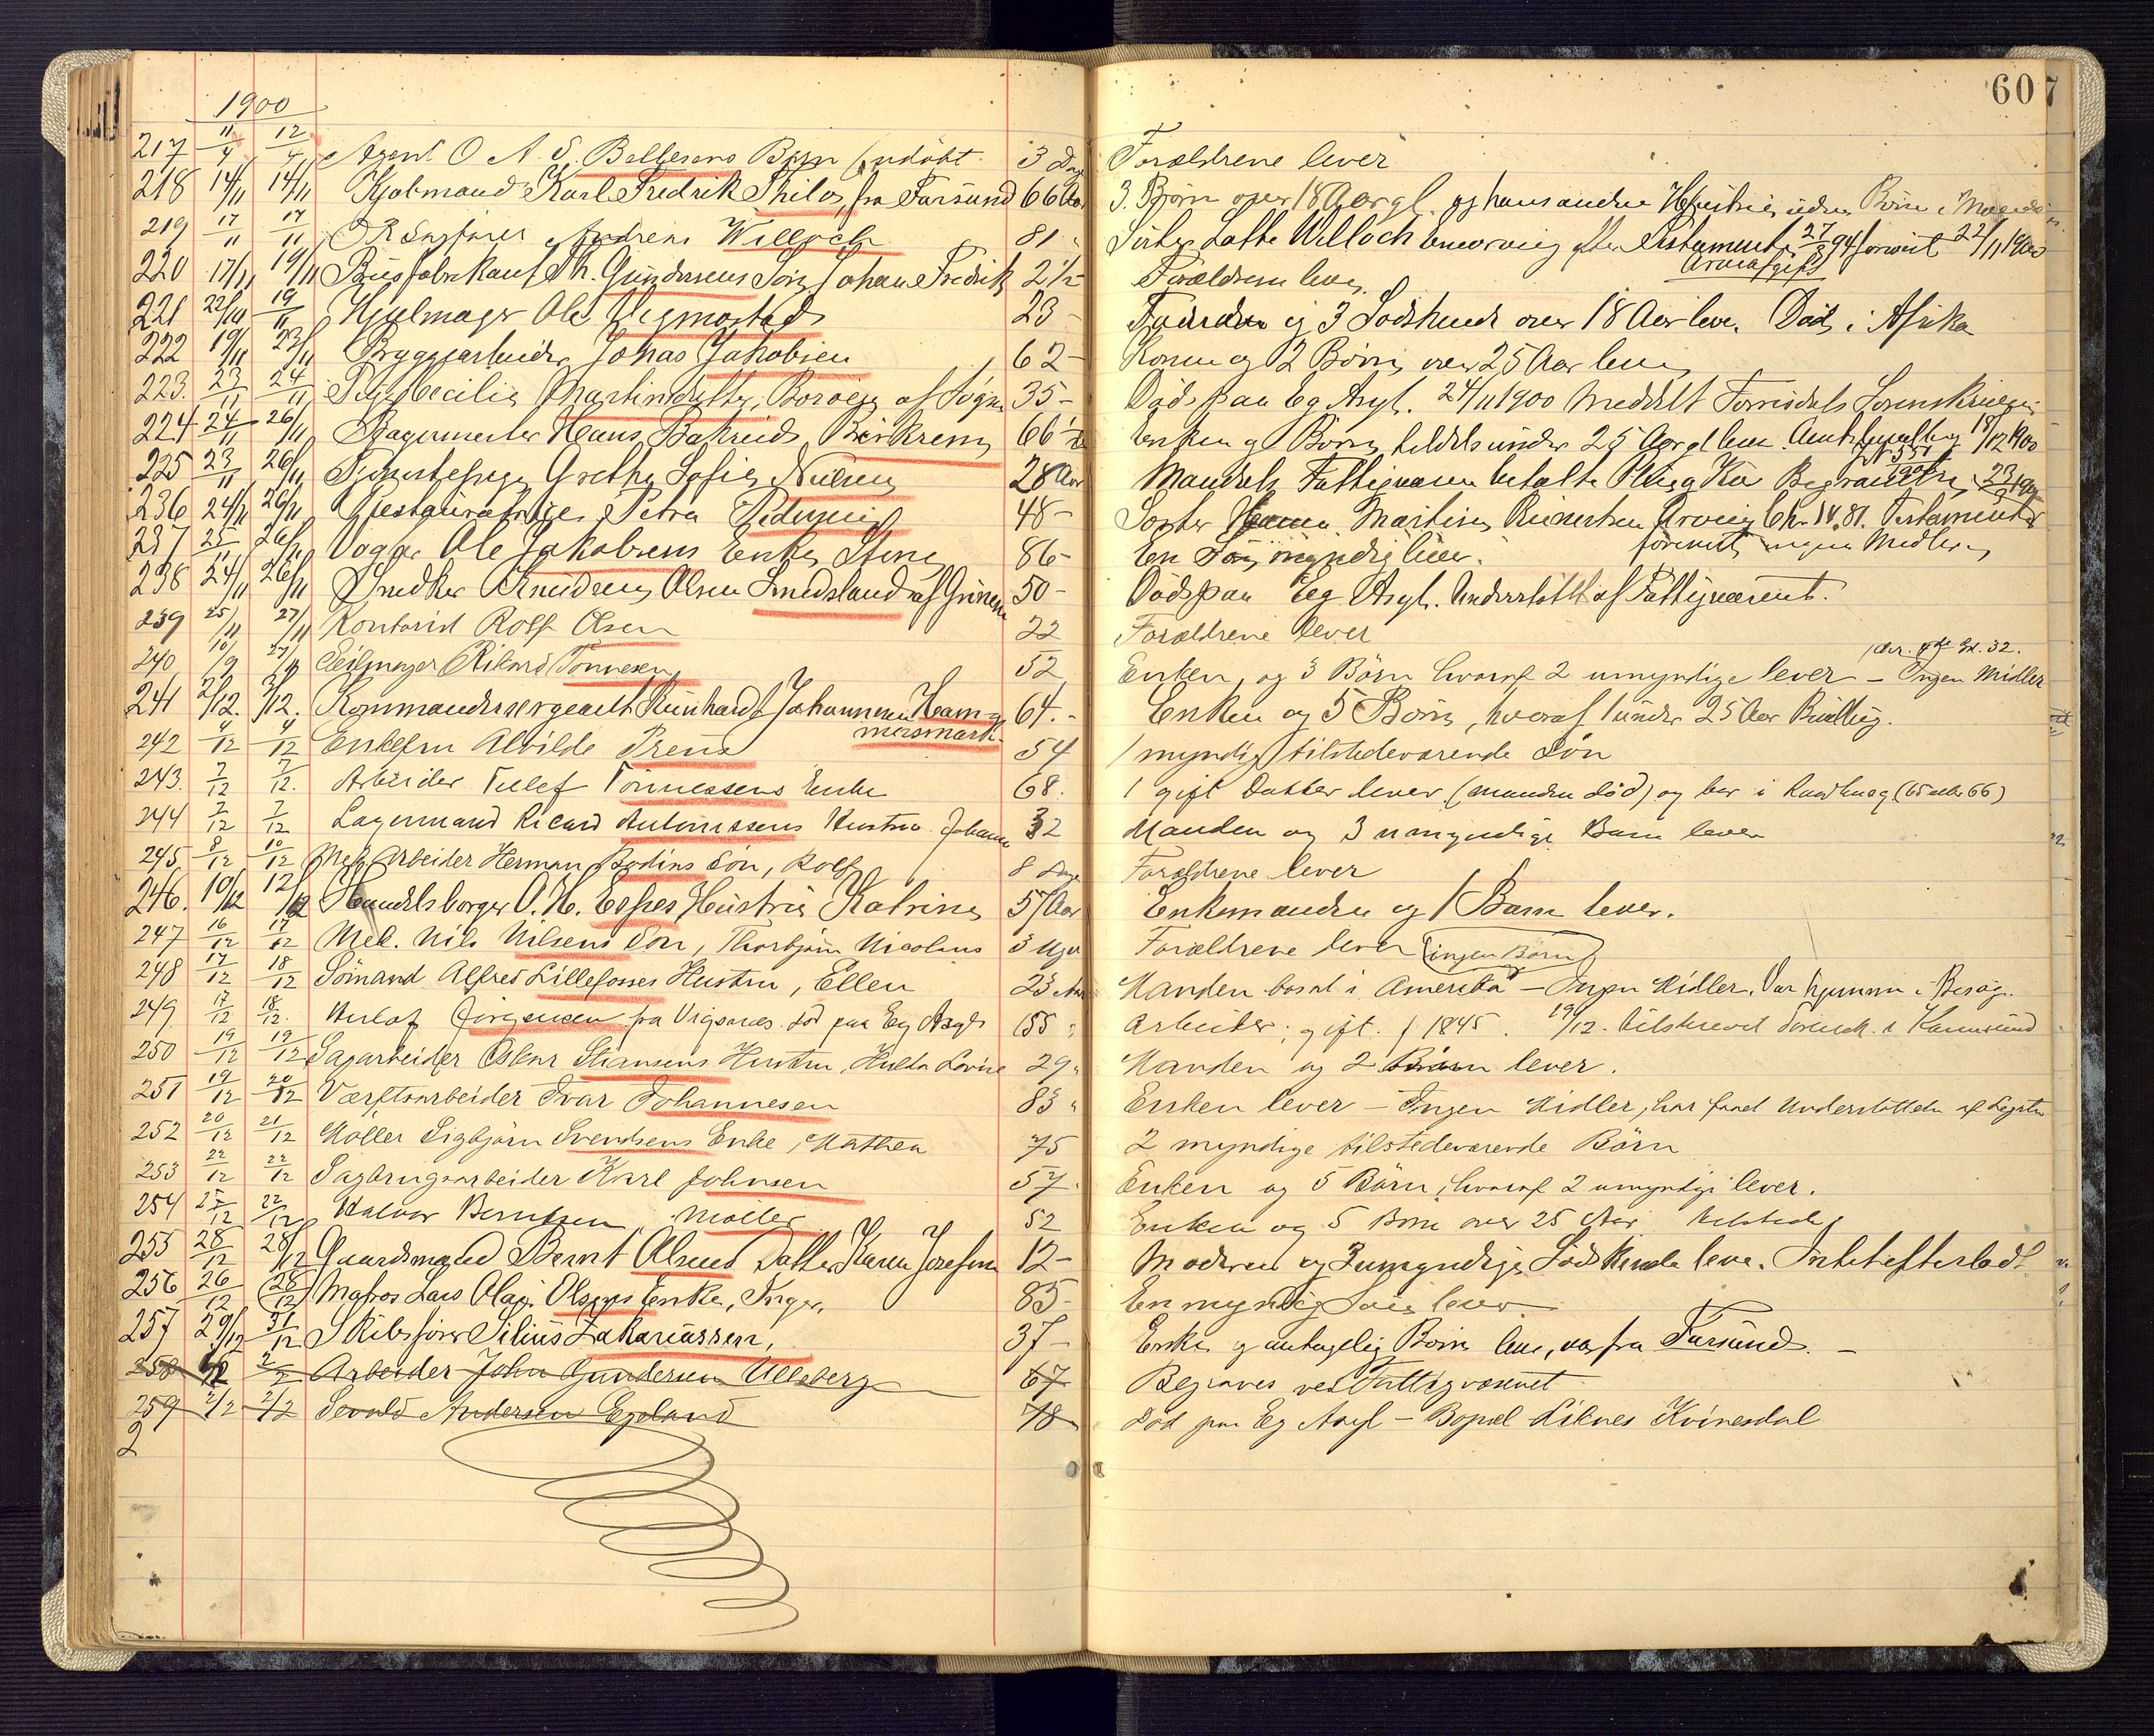 607
1900
217 11/4 12/4 Agent O A. S. Bellesens Barn (udöbt. 3 Dage Forældrene lever
218 14/11 14/11 Kjøbmand Karl Fredrik Thilo, fra Farsund 66 Aar 3. Børn over 18 Aar gl. og hans anden Hustru uden Børn i
219 17/11 17/11 Andreas Willoch 81 " Søster Lotte Willoch enearving efter Testament 27/3 94 forevist 22/11 1900
Arveafgift
220 17/11 19/11 Th. Gundersens Søn Johan Fredrik 2 1/2 - Forældrene lever
221 22/10 19/11 Hjulmager Ole 23 - og 3 Sødskende over 18 Aar lever. Død i Afrika
222 19/11 23/11 Bryggearbeider Johas Jakobsen 62 - Konen og 2 Børn over 25 Aar lever
223. 23/11 24/11 Pige Cecilie Martinsdatter, af Søgne 35 - Død paa Eg Asyl. 24/11 1900 Meddelt Torrisdals Sorenskriveri
224 24/11 26/11 Bagermester Hans Bakrud Birkrem 66 1/2 Enken og Børn, tildels under 25 Aar gl lever. 18/12 1900
225 23/11 26/11 Tjenestepige Grethe Sofie Nilsen 28 Aar Mandals Fattigvæsen betalte Pleie og Kur
236 24/11 26/11 Petra Pedersen 48 - Søster Martine Reinertsen Arving Chr 14. 81. Testamenter
forevist, ingen Midler
237 25/11 26/11 Vogger Ole Jakobsens Enke, Stine 86 - En Søn, myndig lever.
238 24/11 26/11 Snedker Knudsen Olsen Smedsland af Grinem 50 - Død paa Eg Asyl. Understøttet af Fattigvæsenet.
239 25/11 27/11 Kontorist Rolf Olsen 22 Forældrene lever
240 10/9 27/11 Seilmager Rikard Tönnesen 52 Enken, og 3 Börn hvoraf 2 umyndige lever - Ingen Midler
241 2/12. 3/12. Kommandersergeant Reinhardt Johannesen Ham-
mersmark 64. - Enken og 5 Børn, hvoraf 1 under 25 Aar
242 4/12 4/12 Enkefru Alvilde Preus 54 1 myndig tilstedeværende Sön
243. 7/12 7/12. Arbeider Tellef Tönnessens Enke 68. 1 gift Datter lever (manden död) og bor i (65 eller 66)
244 7/12 7/12 Lagermand Ricard Antonissens Hustru Johanne 32 Manden og 3 umyndige Barn lever
245. 8/12 10/12 Mek Arbeider Herman Bodins Sön, Rolf 8 Dage Forældrene lever
246. 10/12 12/12 Handelsborger O. H. Espes Hustru Katrine 57 Aar Enkemanden og 1 Barn lever.
247 16/12 17/12 Mek. Nils Nilsens Sön, Thorbjørn Nicolaus 3 Uger Forældrene lever (ingen Børn)
248 17/12 18/12 Sömand Alfred Lillefosses Hustru, Ellen 23 Aar Manden bosat i Amerika - Ingen Midler. Var hjemme i Besøg.
249 17/12 18/12. Jörgensen fra Vigsnæs. död paa Eg Asyl 55 " Arbeider; gift. f 1845. 19/12. tilskrevet Sorensk. i Karmsund
250 19/12 19/12 Sagarbeider Oskar Stiansens Hustru, Hulda Lovise 29 " Manden og 2 Börn lever.
251 19/12 20/12 Værftsarbeider Ivar Johannesen 83 " Enken lever - Ingen Midler, har faaet Understöttelse af Legater
252 20/12 21/12 Möller Sigbjørn Svendsens Enke, Mathea 75 2 myndige tilstedeværende Börn
253 22/12 22/12 Sagbrugsarbeider Karl Johnsen 57. Enken og 5 Börn, hvoraf 2 umyndige lever.
254 22/12 Halvor Berntsen, Möller 52 Enken og 5 Börn over 25 Aar tilstede
255 28/12 28/12 Gaardmand Bernt Olsens Datter Karen Josefine 12 - Moderen og 3 umyndige Sødskende lever. Intet efterladt
256 26/12 28/12 Matros Lars Olai Olsens Enke, Inger, 85 - En myndig Søn lever
257 29/12 31/12 Skibsfører Silius Zakariassen, 37 - Enke og antagelig Børn lever, var fra Farsund. -
258 2/2 Arbeider John Gundersen Ulleberg 67 Begraves ved Fattigvæsenet
259 2/2 2/2 Sevald Andersen Egeland 78 Död paa Eg Asyl - Bopæl Liknes Kvinesdal
2